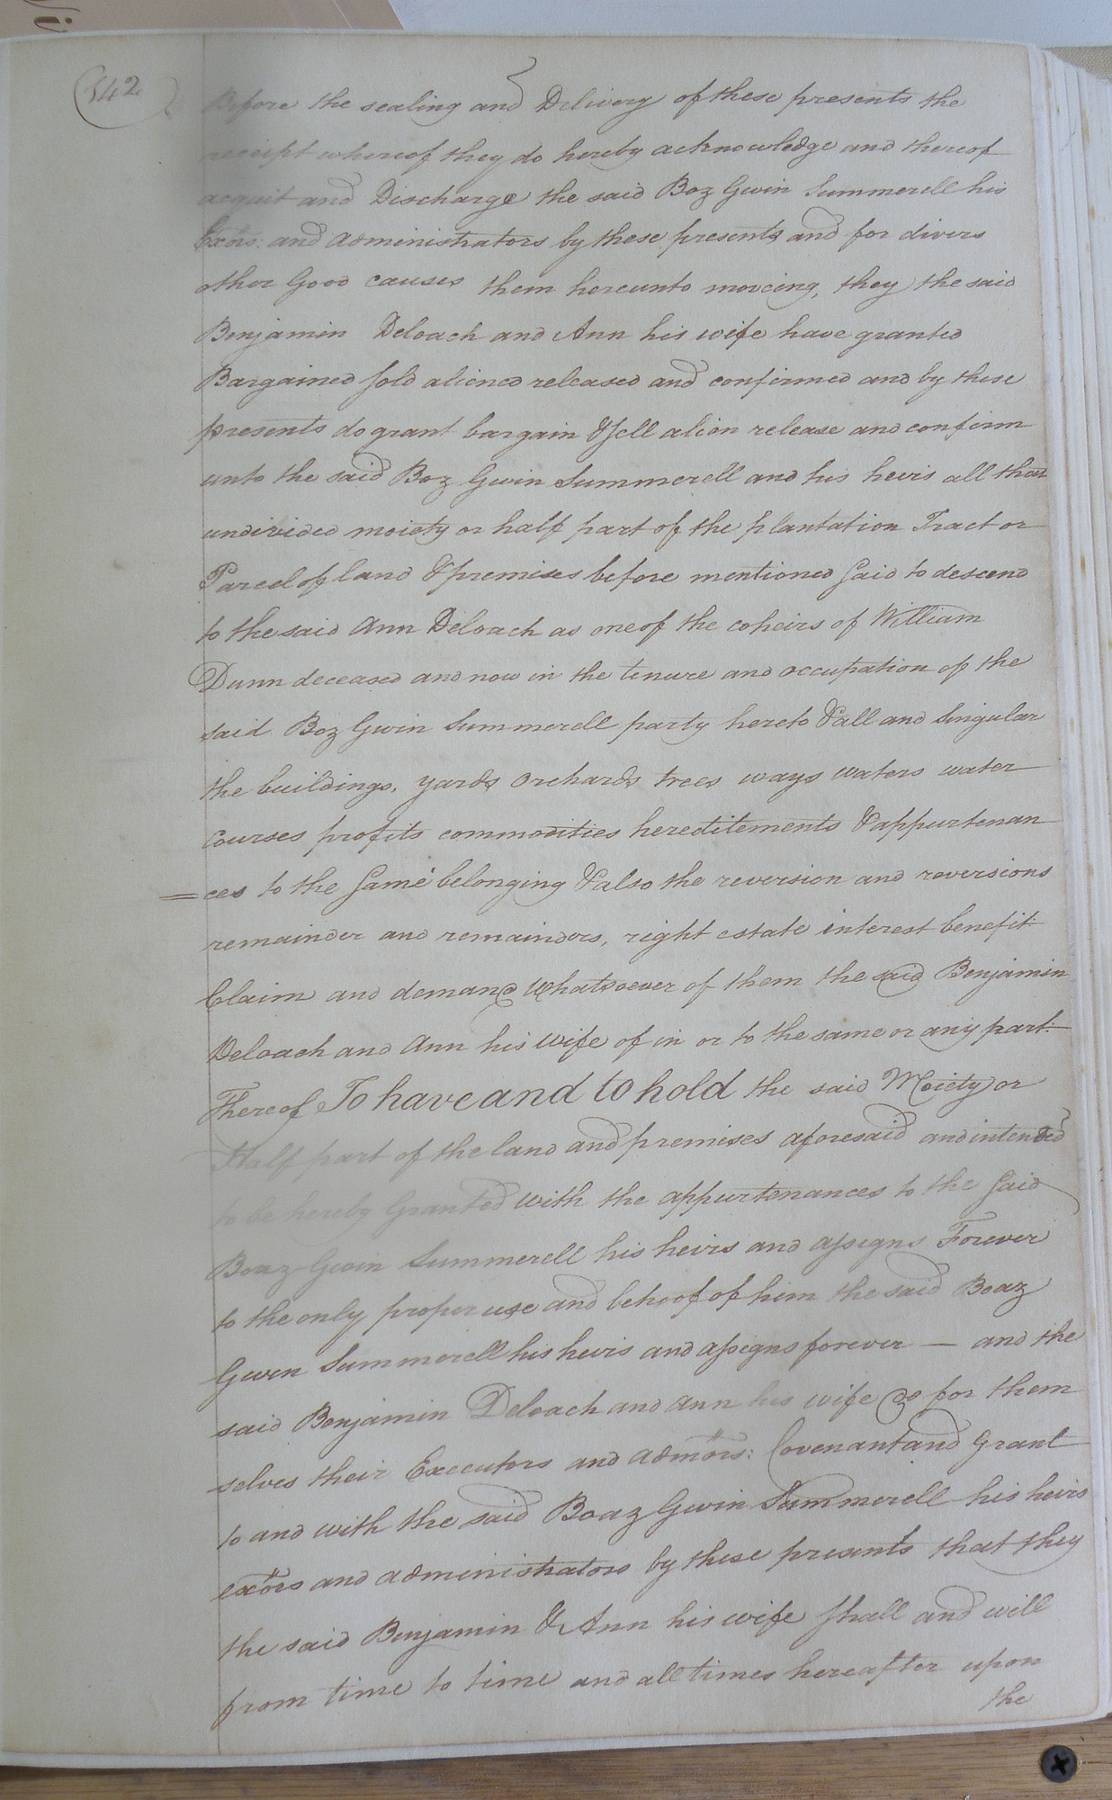 542
Before the sealing and Delivery of these presents the
receipt whereof they do hereby acknowledge and thereof
acquit and Discharge the said Boz Gwin Summerell his
Exõrs: and administrators by these presents and for divers
other Good causes them hereunto moveing, they the said
Benjamin Deloach and Ann his wife have granted
Bargained sold aliened released and confirmed and by these
presents do grant bargain & sell alien release and confirm
unto the said Boz Gwin Summerell and his heirs all that
undivided moiety or half part of the plantation Tract or
Parcel of land & premises before mentioned Said to descend
to the said Ann Deloach as one of the coheirs of William
Dunn deceased and now in the tenure and occupation of the
said Boz Gwin Summerell party hereto & all and Singular
the buildings, yards Orchards trees ways waters water
courses profits commodities hereditements & appurtenan
=ces to the Same belonging & also the reversion and reversions
remainder and remainders, right estate interest benefit
Claim and demand whatsoever of them the said Benjamin
Deloach and Ann his wife of in or to the same or any part
Thereof To have and to hold the said Moiety or
Half part of the land and premises aforesaid and intended
to be hereby Granted with the appurtenances to the Said
Boaz Gwin Summerell his heirs and assigns Forever
to the only proper use and behoof of him the said Boaz
Gwin Summerell his heirs and assigns forever — and the
said Benjamin Deloach and Ann his wife do for them
selves their Executors and admõrs: Covenant and Grant
to and with the said Boaz Gwin Summerell his heirs
exõrs and administrators by these presents that they
the said Benjamin & Ann his wife shall and will
from time to time and all times hereafter upon
the